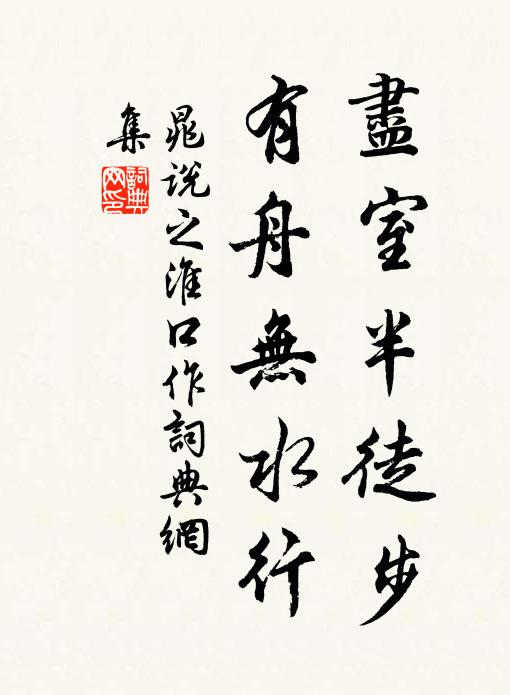 盡室半徒步
有舟無水行
晁說之淮口作詞典網
集
詞典
网印